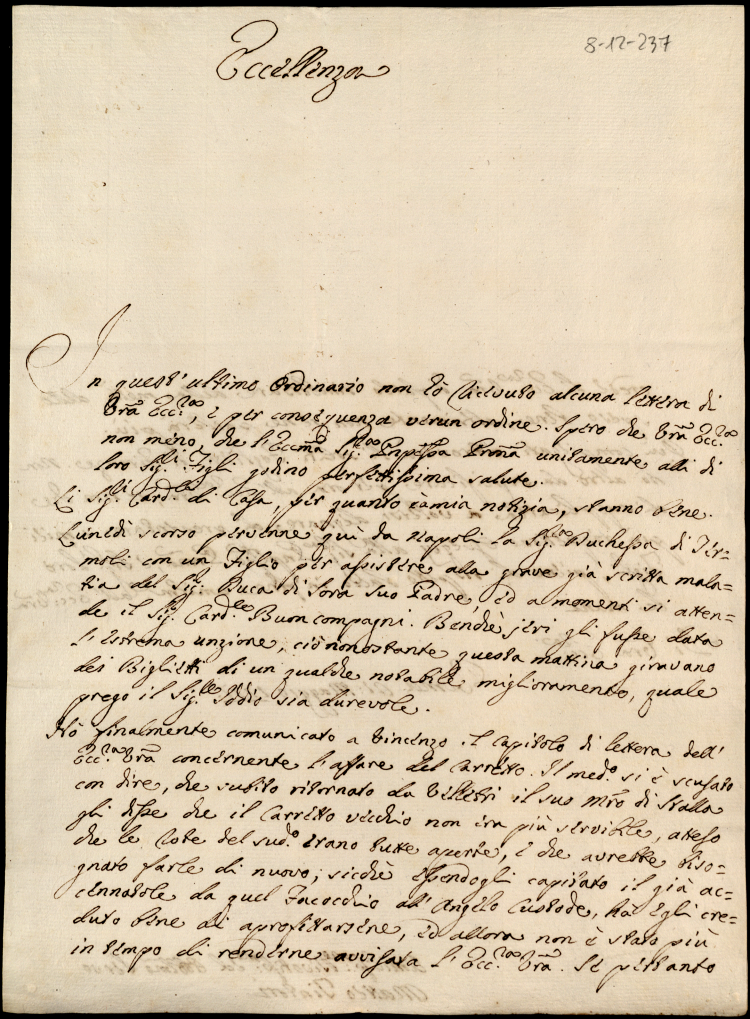 8-12-237
Eccellenza
In quest'ultimo Ordinario non hò ricevuto alcuna lettera di
Vrã Ecc.za, e per conseguenza verun ordine. Spero che Vrã Ecc.za
non meno, che l'Eccm̃a Sig.ra Pnpessa Pnña unitamente alli di
loro Sig.li Figli godino perfettissima salute.
Li Sig.li Card.li di Casa, per quanto è a mia notizia, stanno bene.
Lunedì scorso pervenne quì da Napoli la Sig.ra Duchessa di Ter=
moli con un Figlio per assistere alla grave già scritta mala=
tia del Sig.r Duca di Sora suo Padre, ed a momenti si atten=
de il Sig.r Card.le Buoncompagni. Benchè jeri gli fusse data
l'estrema unzione, ciò nonostante questa mattina giravano
dei Biglietti di un qualche notabile miglioramento, quale
prego il Sig.re Iddio sia durevole.
Hò finalmente comunicato a Vincenzo il Capitolo di lettera dell'
Ecc.za Vrã concernente l'affare del Carretto. Il med.o si è scusato
con dire, che subito ritornato da Velletri il suo Mrõ di Stalla
gli disse che il Carretto vecchio non era più servibile, atteso
che le rote del sud.o erano tutte aperte, e che avrebbe biso=
gnato farle di nuovo; sicchè essendogli capitato il già ac=
cennatole da quel Facocchio all'Angelo Custode, hà egli cre=
duto bene di aprofittarsene, ed allora non è stato più
in tempo di renderne avvisata l'Ecc.za Vrã. Se pertanto